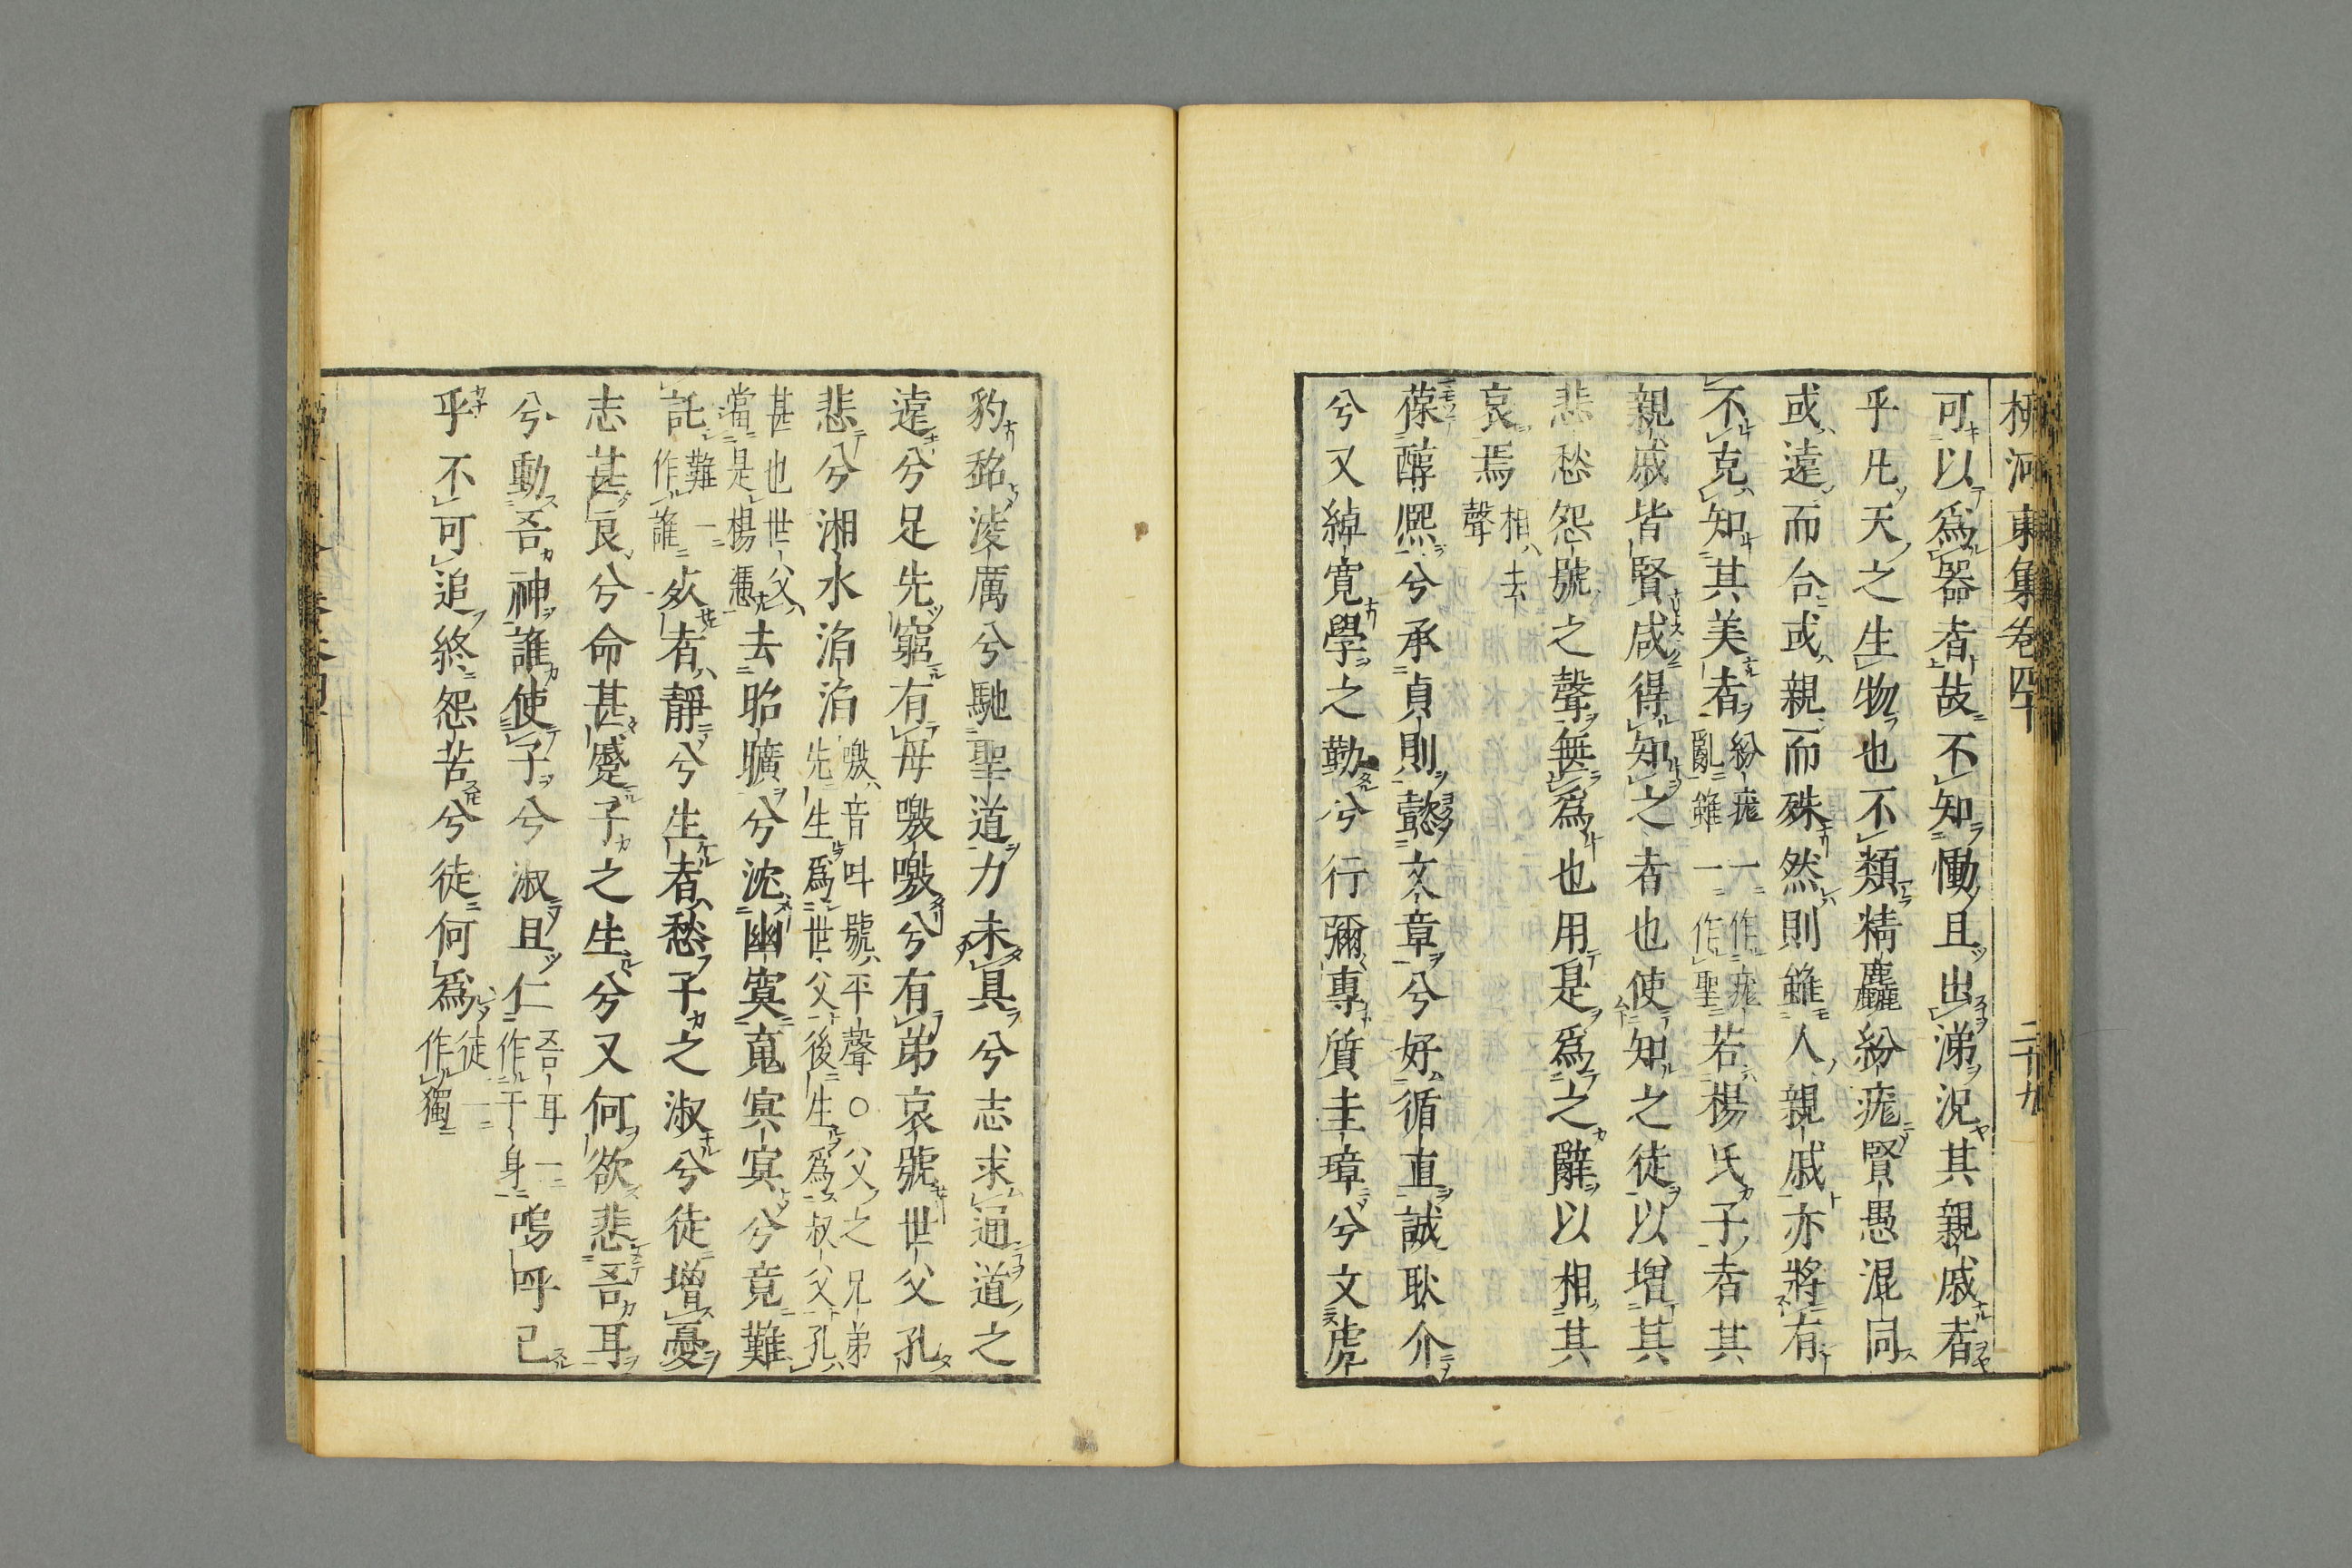 柳河東集卷四十 二十九
可以爲器者故不知慟且出涕况其親戚者
乎凡天之生物也不類精麤紛厖賢愚混同
或遠而合或親而殊然則雖人親戚亦將有
不克知其美者紛厖一作厖亂雖一作聖若楊氏子者其
親戚皆賢咸得知之者也使知之徒以増其
悲愁怨號之聲無爲也用是爲之辭以相其
哀焉相去聲
葆醇熈兮承貞則懿文章兮好循直誠耿介
兮又綽寛學之勤兮行彌專質圭璋兮文虎
豹䝙淩厲兮馳聖道力未具兮志求通道之
遠兮足先窮有母噭噭兮有弟哀號世父孔
悲兮湘水滔滔噭音叫號平聲○父之兄弟先生爲世父後生爲叔父孔
甚也世父當是楊憑去昭曠兮沈幽寞䰟㝠㝠兮竟難
託難一作誰歿者靜兮生者愁子之淑兮徒増憂
志甚良兮命甚蹙子之生兮又何欲悲吾耳
兮動吾神誰使子兮淑且仁吾耳一作干身嗚呼已
乎不可追終怨苦兮徒何爲徒一作獨